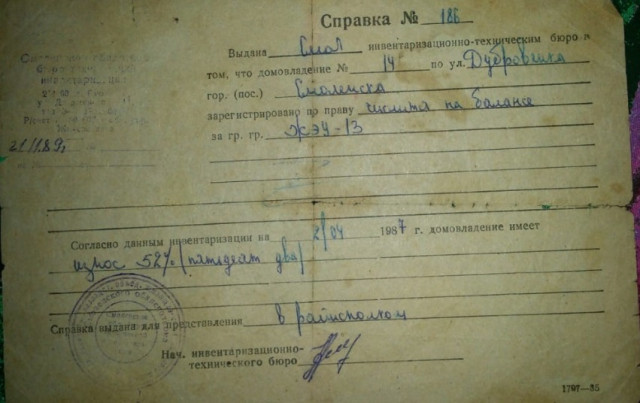 Справка № 186
Выдана Смол инвентаризационно-техническим бюро в
том, что домовладение № 14 по ул. Дубровенка
гор. (пос.) Смоленска
зарегистрировано по праву числится на балансе
за гр. гр. ЖЭУ-13
21.11.89г
Согласно данным инвентаризации на 2/04 1987 г. домовладение имеет
износ 52% (пятьдесят два)
Справка выдана для представления в райисполком
Нач. инвентаризационно-
технического бюро
1797—85